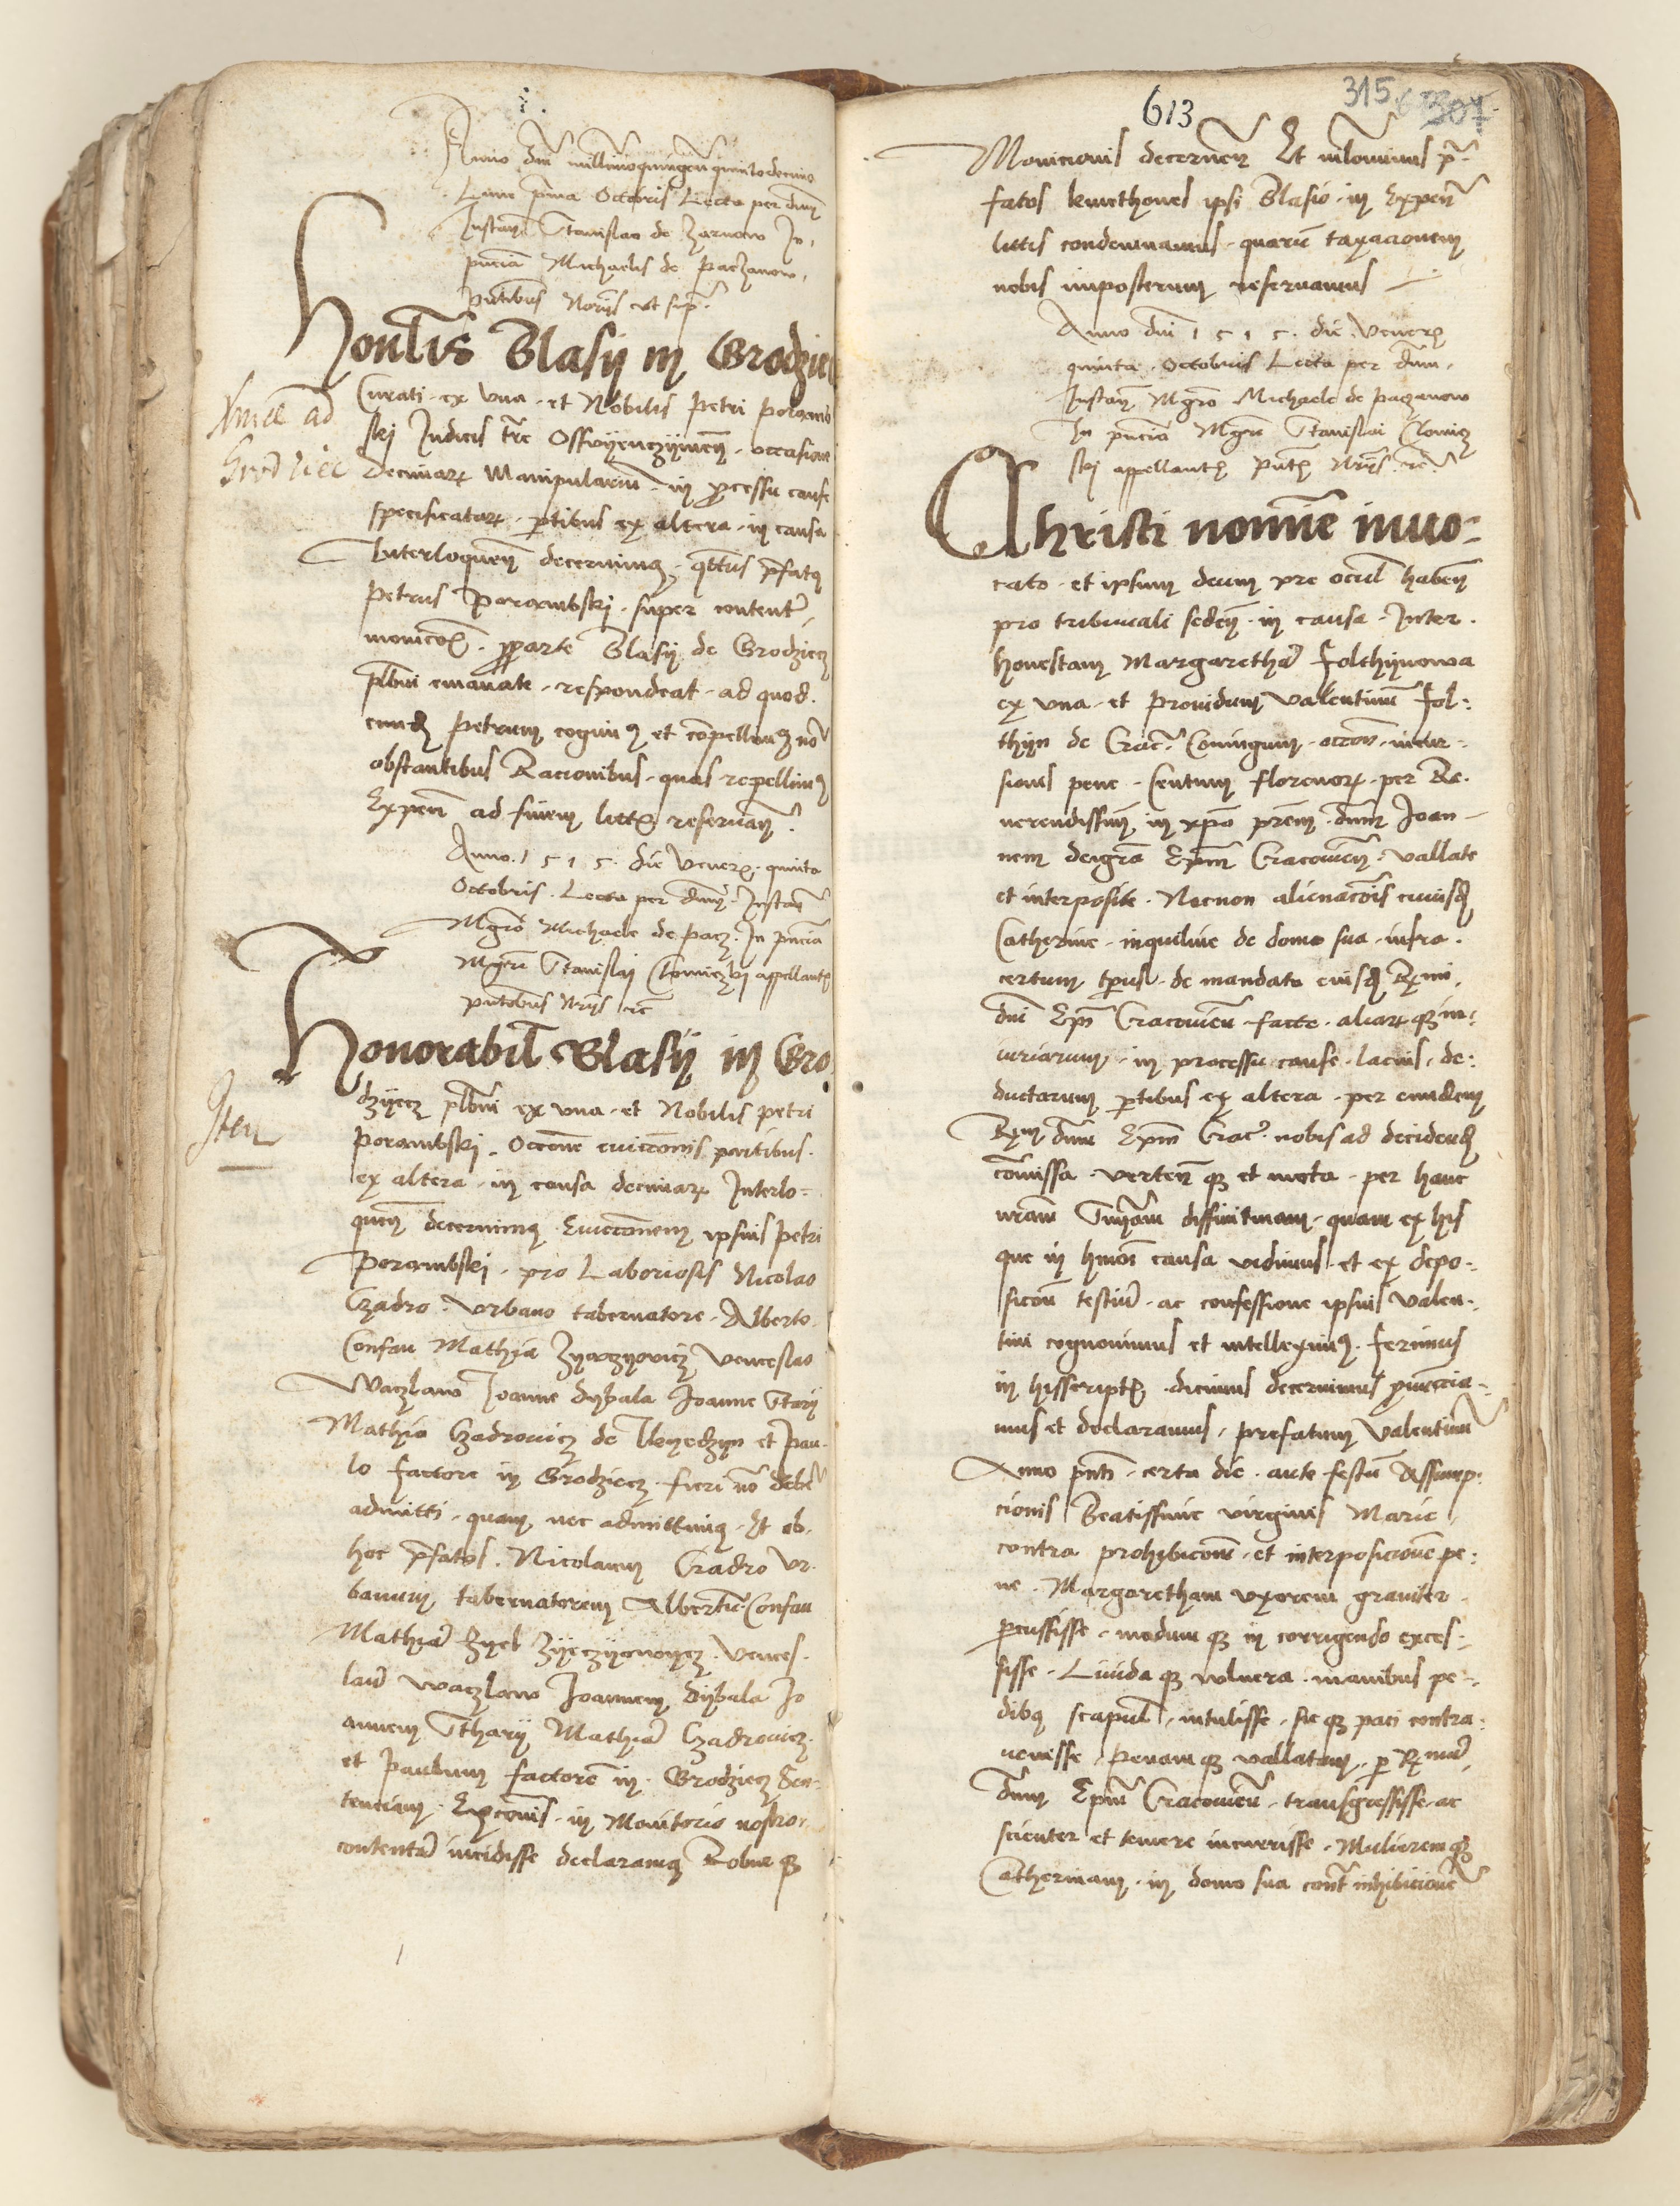 Anno dni millimoquingen quintodecimo
Lune prima Octobris Lecta per dnm
Instan Stanislao de Zarnow In
pncia Michaelis de Paczanow
pntibus Norijs ut supra
Honlis Blasij in Grodziecz
Curati ex una et Nobilis Petri Porambs
ski Iudicis tre Osswyenczymen occasione
decimar Manipularium in processu cause
specificatar ptibus ex altera in causa
Interloquen decernimus qtus pfatus
Petrus Porambski super contentis
monicois pparte Blasij de Grodziecz
plbni emanate respondeat ad quod
eund Petrum cogimus et compellimus no
obstantibus Racionibus quas repellimus
Expen ad finem litis reservan
Anno 1515 die Veneris quinta
Octobris Lecta per dnm Instan
Mgro Michaele de Pacz In pncia
Mgri Stanislai Slomiczki appellantis
pntibus Nrijs etc
Honorabil Blasij in Gro
dzyecz plbni ex una et Nobilis Petri
Porambski Occone evicconis partibus
ex altera in causa decimar Interlo=
quen decernimus Eviccionem ipsius Petri
Porambski pro Laboriosis Nicolao
Czadro Urbano tabernatore Alberto
Consau Mathia Venceslao
Waczlaw Joanne Dybala Joanne Stary
Mathia Czadrowicz de et Pau
lo factore in Grodziecz fieri no debe
admitti quam nec admittimus Et ob
hoc pfatos Nicolaum Czadro Ur
banum tabernatorem Albertum Consau
Mathiam Vences
laum Waczlaw Joannem Dybala Jo
annem Stharij Mathiam Czadrowicz
et Paulum factore in Grodziecz Sen
tenciam Excomis in Monitorio nostro
contentam incidisse declaramus Robur q
Item
613
315
307
Monicionis decernen Et nlominus p
fatos kmethones ipsi Blasio in Expen
litis condemnamus quaru taxacionem
nobis imposterum reservamus
Anno dni 1515 die Veneris
quinta Octobris Lecta per dnm
Instan Mgro Michaele de Paczanow
In pncia Mgri Stanislai Slomicz
ski appellantis pntis Nrijs etc
Christi nomine invo=
cato et ipsum deum pre ocul haben
pro tribunali seden in causa Inter
honestam Margaretha Folthynowa
ex una et Providum Valentinu Fol=
thyn de Crac Coniugum occone incur=
sionis pene Centum florenor per Re
verendissimu in xpo prem dnum Joan
nem deigra Epm Cracovien vallate
et interposite Necnon alienacois cuiusd
Catherine inquiline de domo sua infra
certum tpus de mandato eiusd Rmi
dni Epi Cracovien facte aliar q in=
iuriarum in processu cause lacius de=
ductarum ptibus ex altera per eundem
Rm dnm Epm Crac nobis ad decidend
comissa verten q et mota per hanc
nram Sniam diffinitivam quam ex his
que in hmoi causa vidimus et ex depo=
sicoe testiu ac confessione ipsius Valen
tini cognovimus et intelleximus ferimus
in hisscriptis dicimus decernimus pnuncia
mus et declaramus prefatum Valentinu
Anno pnti certa die ante festu Assump
cionis Beatissime virginis Marie
contra prohibicoem et interposicionem pe=
ne Margaretham uxorem graviter
percussisse modum q in corrigendo exces=
sisse Livida q vulnera manibus pe=
dibus scapul intulisse sic q paci contra
venisse Penam q vallatam p Rmu
dnm Epm Cracovien transgressisse ac
scienter et temere incurrisse Mulierem q
Catherinam in domo sua cont inhibicione